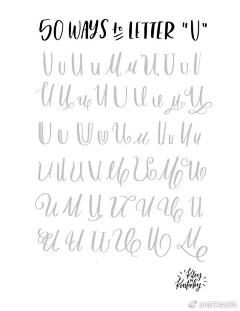 50 WAYS to LETTER "U"
U U U U U U U U U
U U U U U U U U U
U U U U U U U U U
U U U U U U U U
U U U U U U U U
U U U U U U U